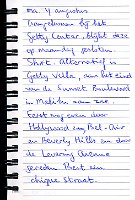 ma. 4 augustus
Aangekomen bij het
Getty Center, blijkt deze
op maandag gesloten.
Shit. Alternatief is
Getty Villa, aan het eind
van de Sunset Boulevard
in Malibu aan zee.
Eerst nog even door
Hollywood en Bel-Air
en Beverly Hills en door
de Levering Avenue
gereden. Best een
chique straat.